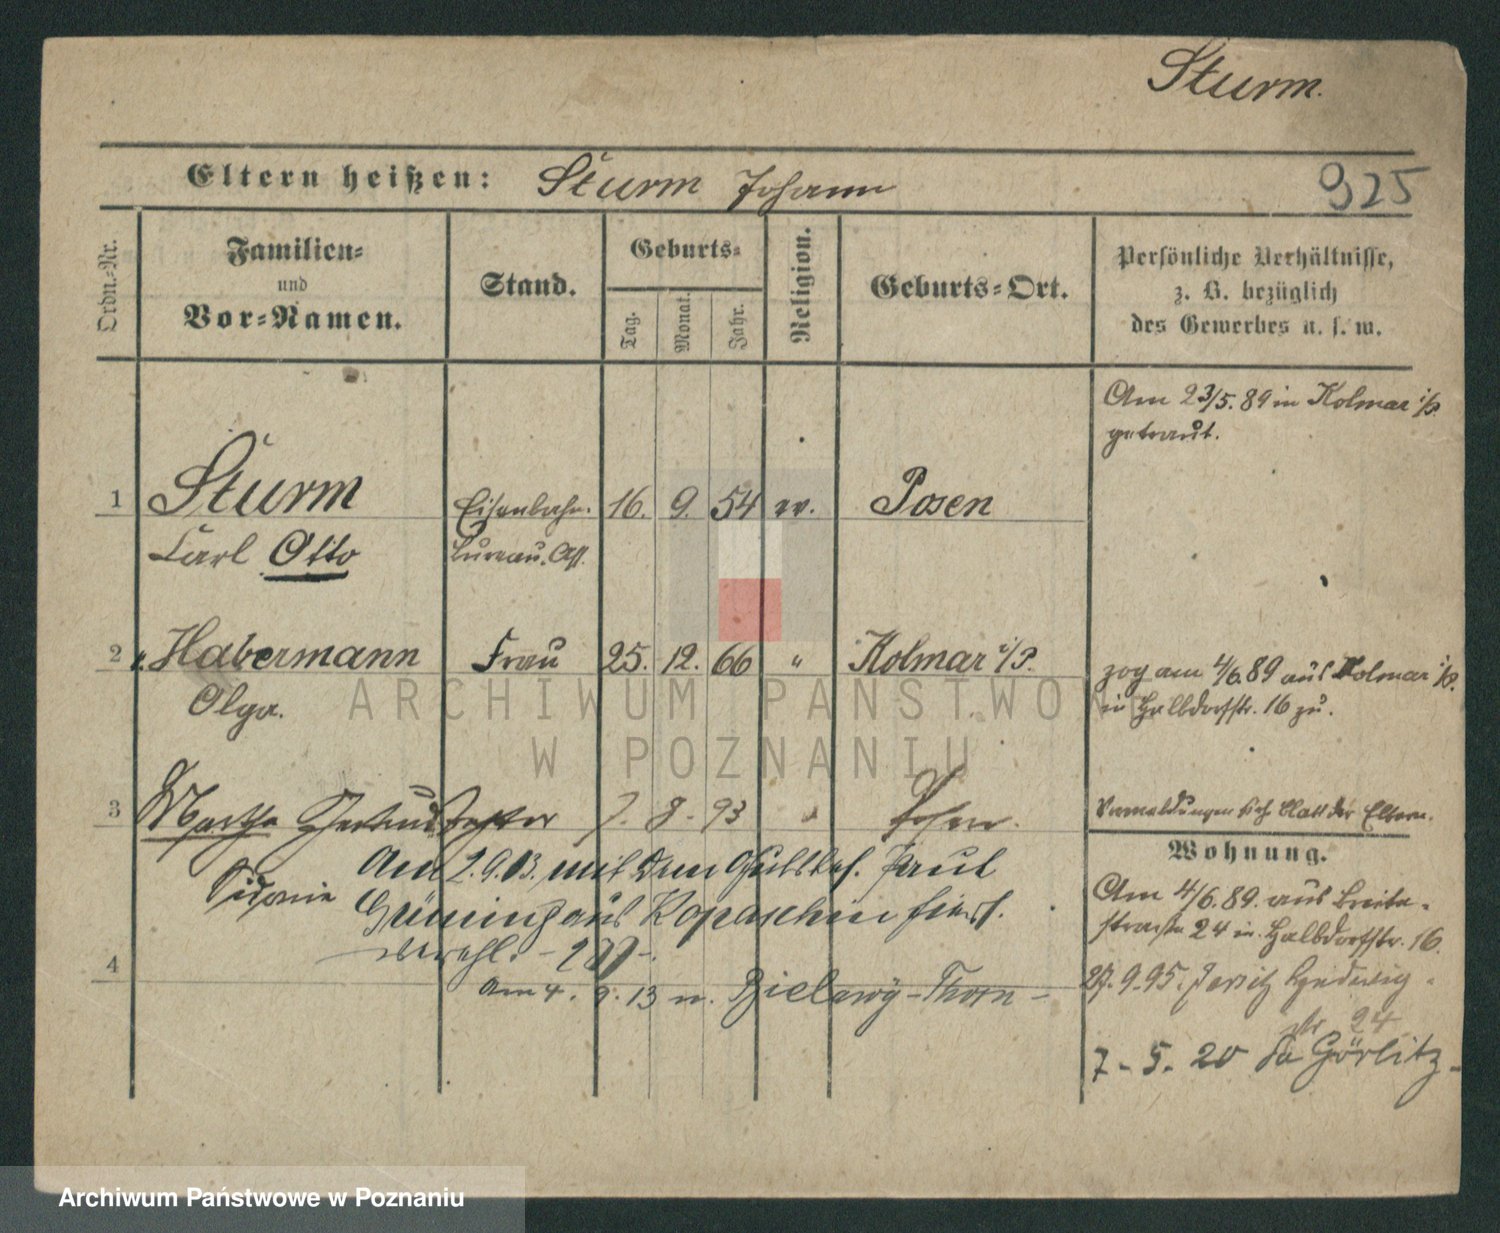 Sturm.
Eltern heißen: Sturm Johann
925
Ordn.-Nr.
Familien-
und
Vor-Namen.
Stand.
Geburts-
Tag.
Monat.
Jahr.
Religion.
Geburts-Ort.
Persönliche Verhältnisse,
z. B. bezüglich
des Gewerbes u. s. w.
Am 23/5. 89 in Kolmar i/P.
getraut.
1 Sturm Eisenbahn. 16. 9. 54 ev. Posen
Carl Otto Bureau. Ass.
2 Habermann Frau 25. 12. 66 " Kolmar i/P.
Olga.
zog am 4/6. 89 aus Kolmar i/P.
in Halbdorfstr. 16 zu.
3 Martha Gertrud Tochter 7. 8. 93 Posen.
Sidonie
Vermeldungen sieh Blatt der Eltern.
Am 2.9.13. mit dem Gutsbes. Paul
aus
verehl.
4
Am 4. 9. 13 n. - Thorn -
Wohnung.
Am 4/6. 89. aus Breite-
straße 24 in Halbdorfstr. 16
27. 9. 95. Jersitz Hedwig
Str 24
7. 5. 20 Görlitz
ARCHIWUM PAŃSTWOWE
W POZNANIU
Archiwum Państwowe w Poznaniu